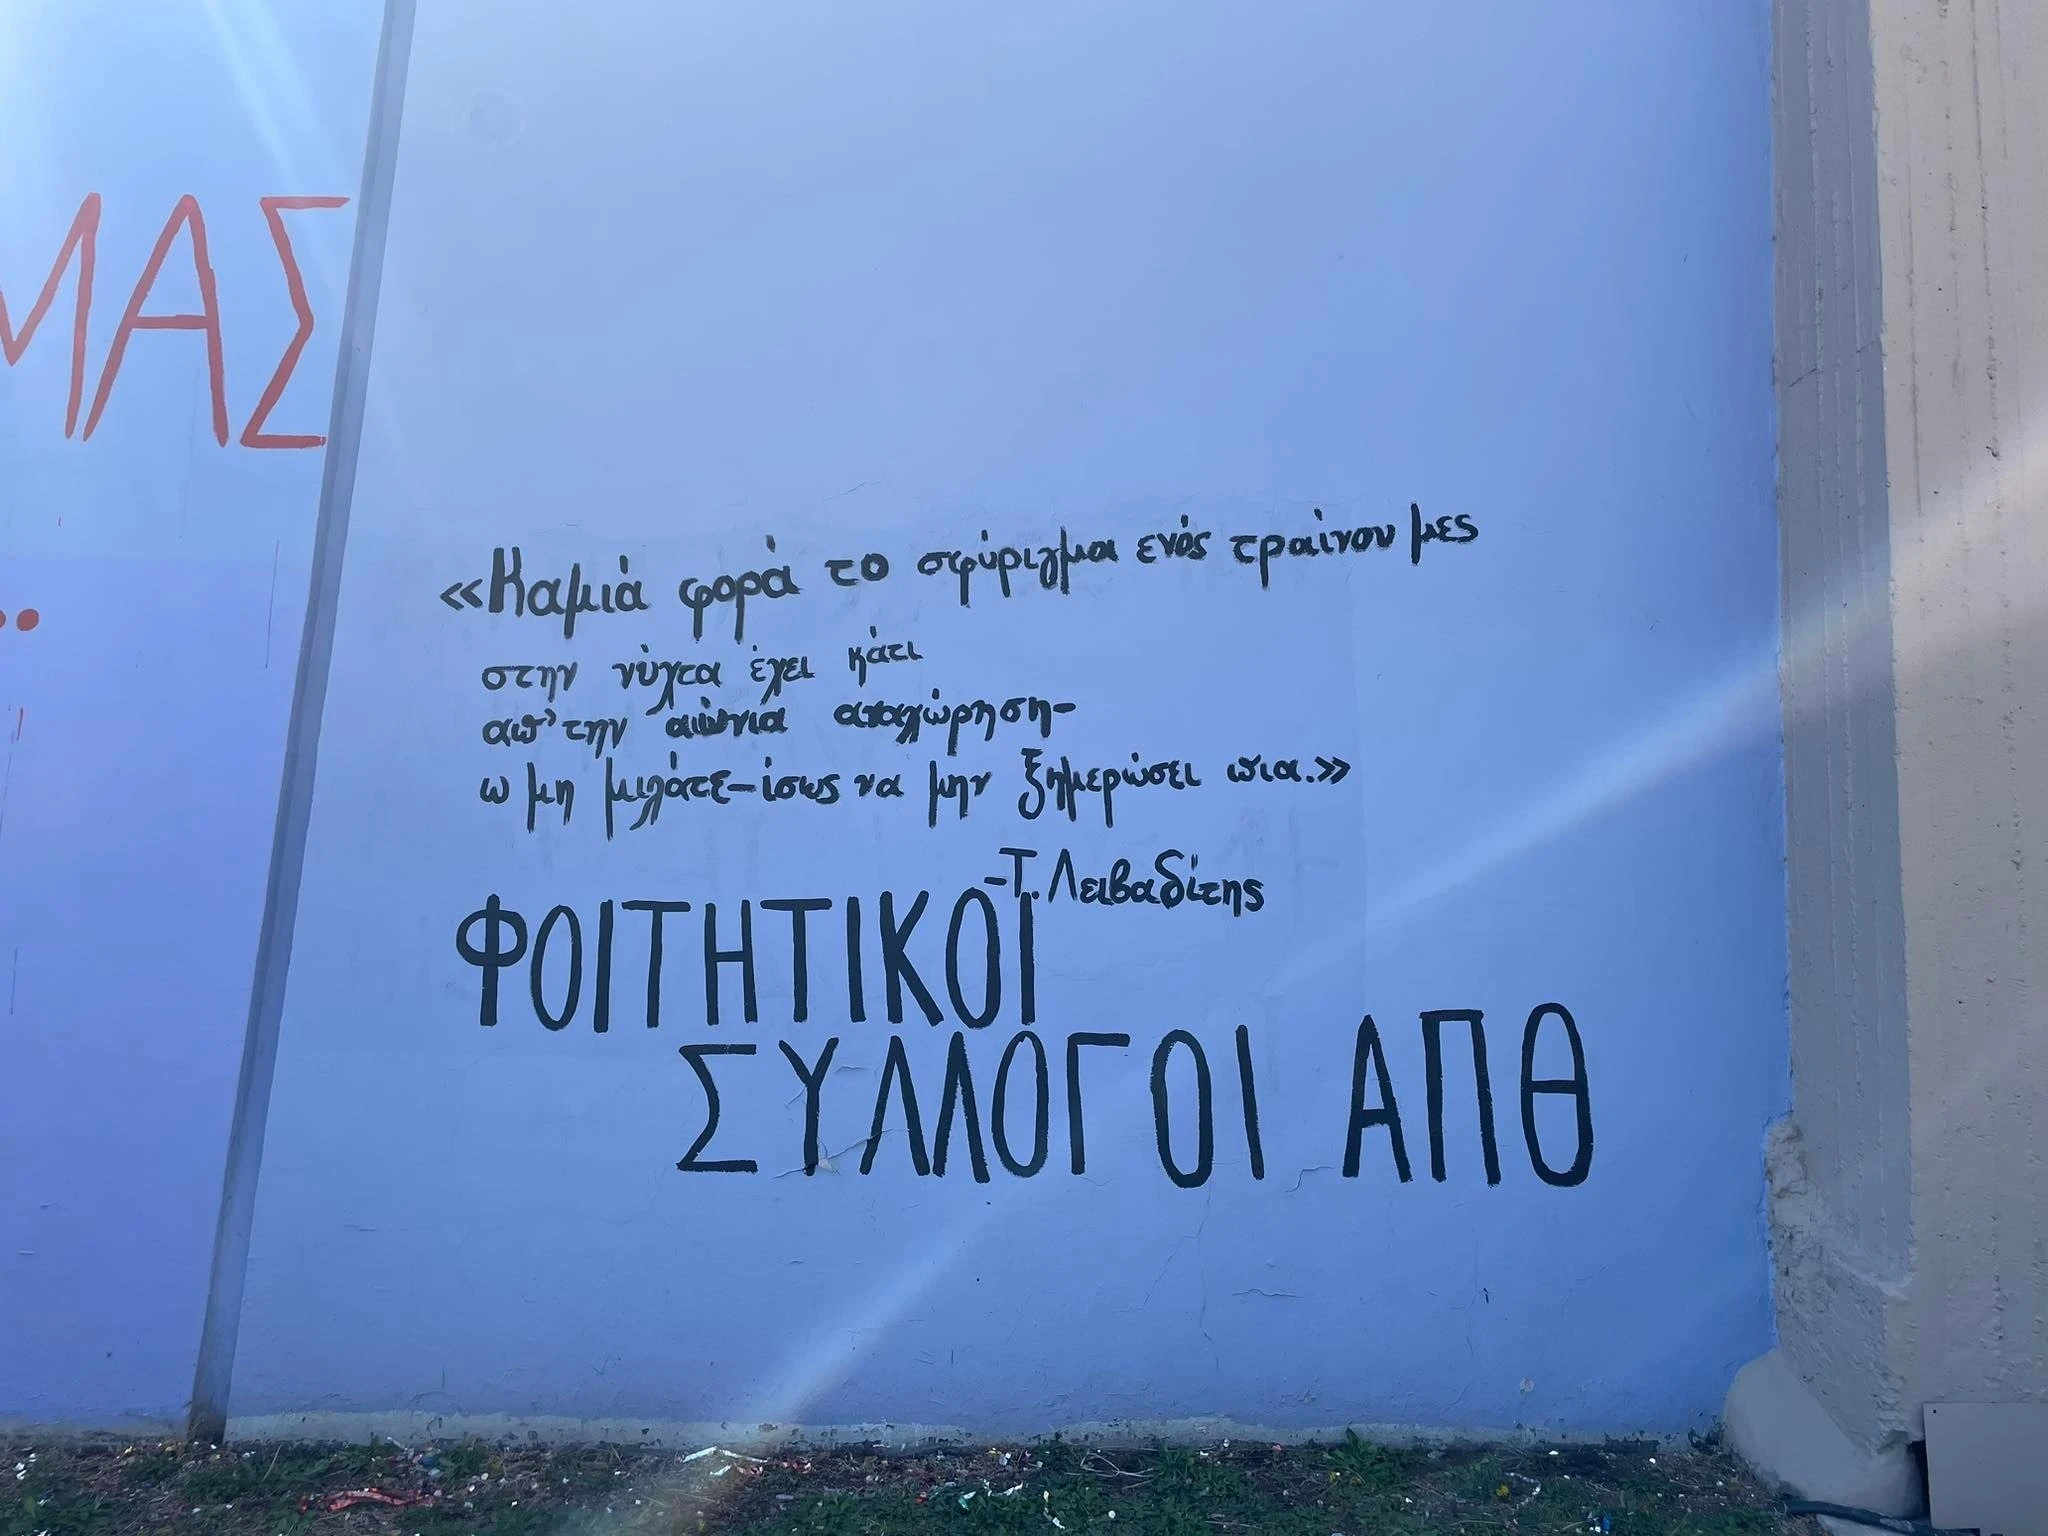 ΜΑΣ
..
«Καμιά φορά το σφύριγμα ενός τραίνου μες
στην νύχτα έχει κάτι
απ' την αιώνια αναχώρηση-
ω μη μιλάτε-ίσως να μην ξημερώσει πια.»
-Τ. Λειβαδίτης
ΦΟΙΤΗΤΙΚΟΙ
ΣΥΛΛΟΓΟΙ ΑΠΘ